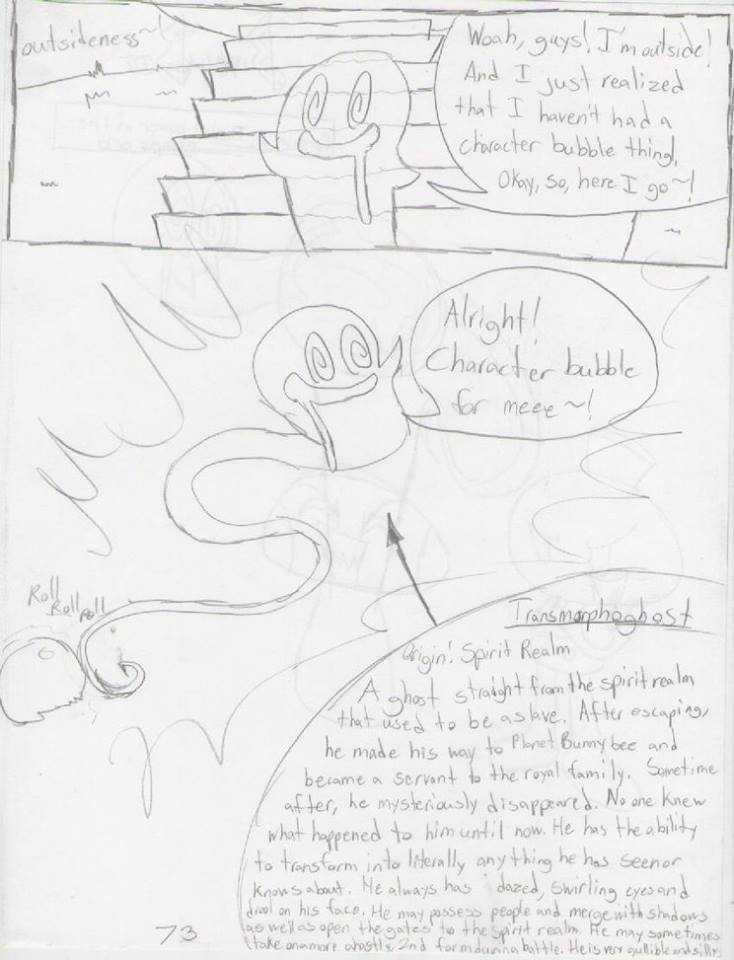 outsideness~!
Woah, guys! I'm outside!
And I just realized
that I haven't had a
character bubble thing.
Okay, so, here I go~!
Alright!
Character bubble
for meee~!
Roll
Roll
Roll
Transmorphoghost
Origin: Spirit Realm
A ghost straight from the spirit realm
that used to be a slave. After escaping,
he made his way to Planet Bunnybee and
became a servant to the royal family. Sometime
after, he mysteriously disappeared. No one knew
what happened to him until now. He has the ability
to transform into literally anything he has seen or
knows about. He always has dazed, swirling eyes and
drool on his face. He may possess people and merge with shadows
as well as open the gates to the spirit realm. He may sometimes
take on a more ghostly 2nd form during battle. He is very gullible and silly.
73